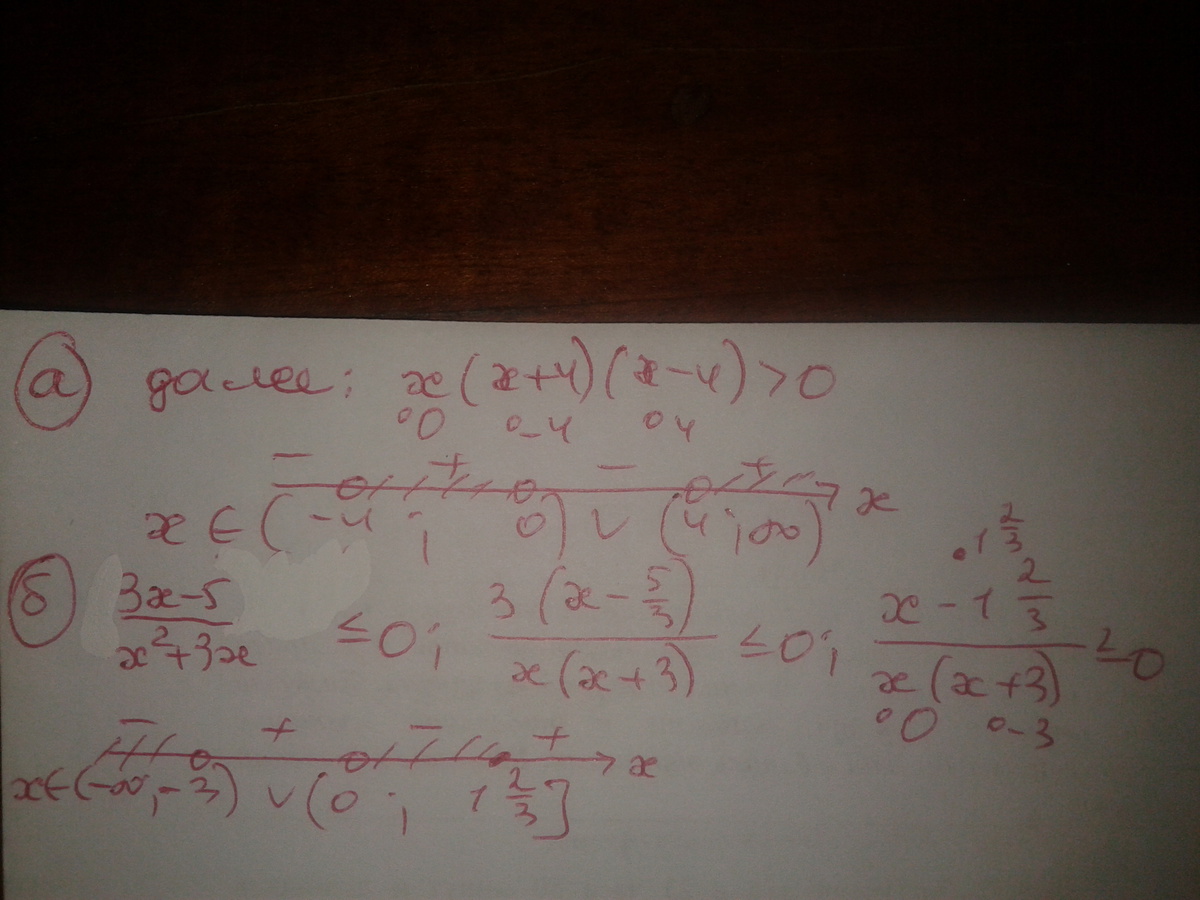 а) далее: x(x+4)(x-4)>0
°0 °-4 °4
- + - +
x
x ∈ (-4; 0) ∨ (4; ∞)
б) (3x-5)/(x²+3x) ≤0; 3(x-5/3)/(x(x+3)) ≤0; (x-1 2/3)/(x(x+3)) ≤0
• 1 2/3
°0 °-3
- + - +
x
x∈(-∞;-3) ∨ (0; 1 2/3]